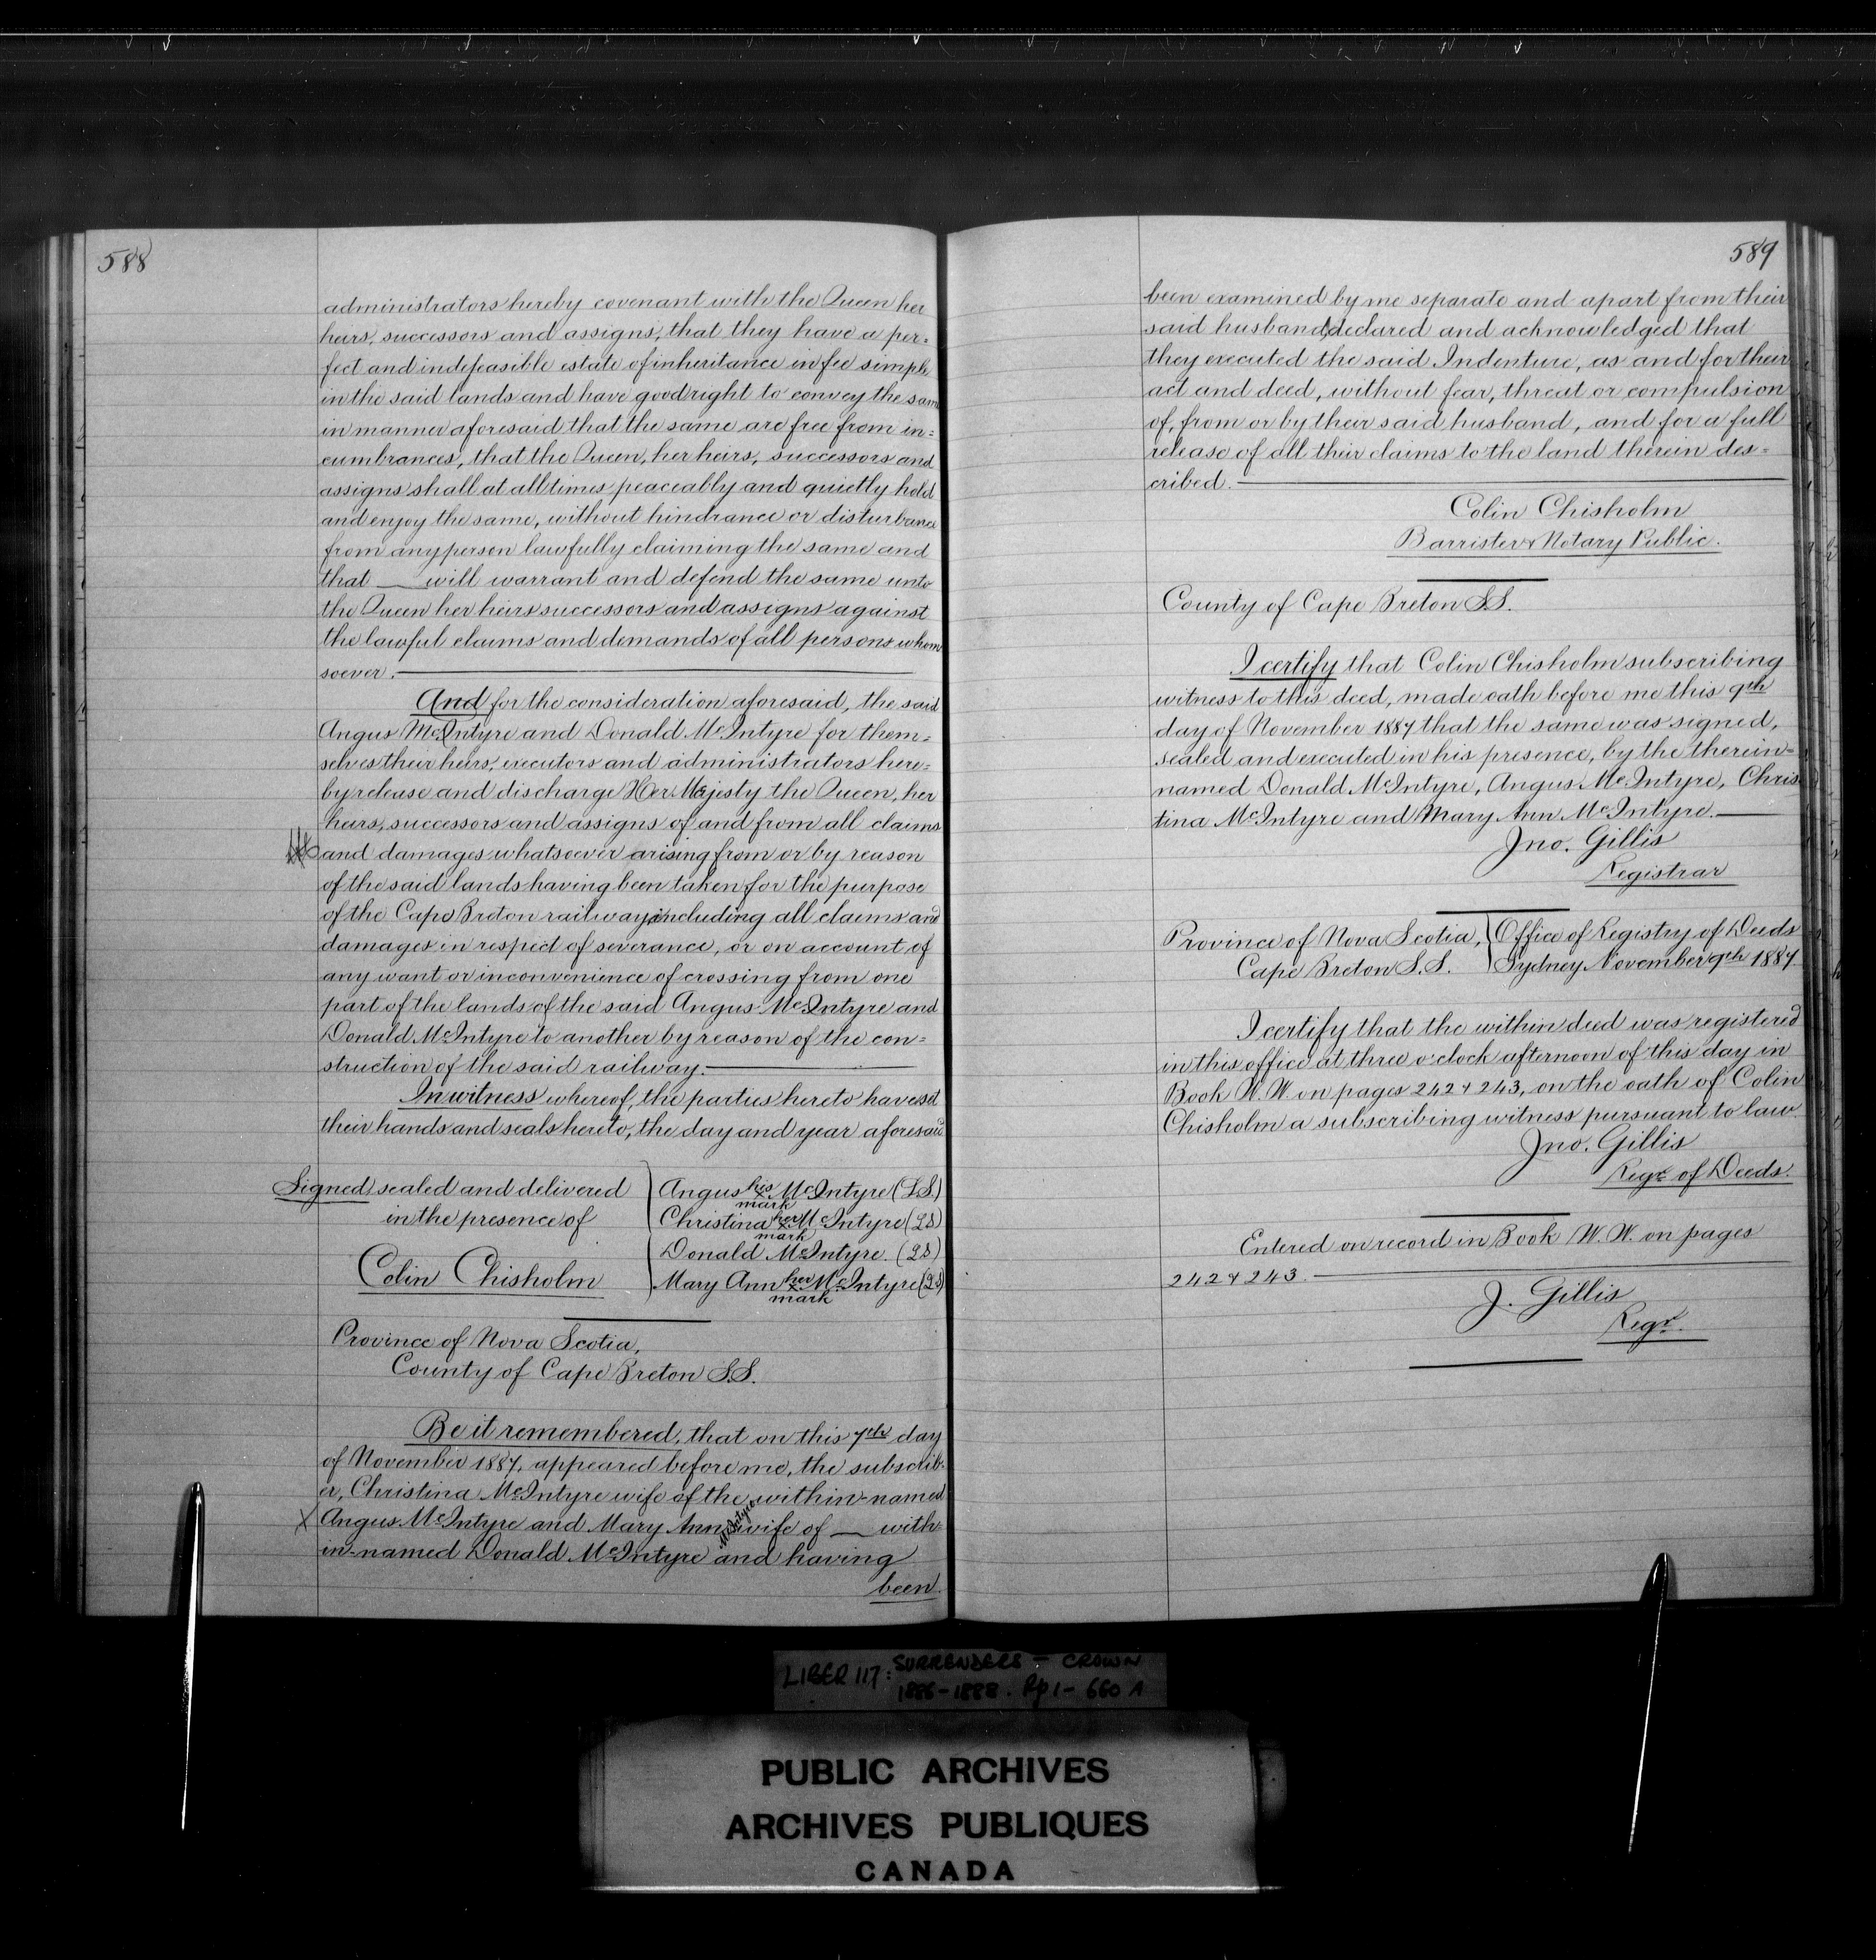 588
administrators hereby covenant with the Queen her
heirs, successors and assigns, that they have a per=
fect and indefeasible estate of inheritance in fee simple
in the said lands and have good right to convey the same
in manner aforesaid that the same are free from in=
cumbrances, that the Queen, her heirs, successors and
assigns shall at all times peaceably and quietly hold
and enjoy the same, without hindrance or disturbance
from any person lawfully claiming the same and
that ___ will warrant and defend the same unto
the Queen her heirs successors and assigns against
the lawful claims and demands of all persons whom
soever.
And for the consideration aforesaid, the said
Angus McIntyre and Donald McIntyre for them=
selves their heirs, executors and administrators here=
by release and discharge Her Majesty the Queen, her
heirs, successors and assigns of and from all claims
and damages whatsoever arising from or by reason
of the said lands having been taken for the purpose
of the Cape Breton railway, including all claims and
damages in respect of severance, or on account of
any want or inconvenience of crossing from one
part of the lands of the said Angus McIntyre and
Donald McIntyre to another by reason of the con=
struction of the said railway.
In witness whereof, the parties hereto have set
their hands and seals hereto, the day and year aforesaid
Signed, sealed and delivered
in the presence of
Colin Chisholm
Angus his x mark McIntyre (L.S.)
Christina her x mark McIntyre (LS)
Donald McIntyre. (LS)
Mary Ann her x mark McIntyre (LS)
Province of Nova Scotia,
County of Cape Breton S.S.
Be it remembered, that on this 7th day
of November 1887, appeared before me, the subscrib-
er, Christina McIntyre wife of the within-named
X Angus McIntyre and Mary Ann McIntyre wife of ___ with
in-named Donald McIntyre and having
been
589
been examined by me separate and apart from their
said husband, declared and acknowledged that
they executed the said Indenture, as and for their
act and deed, without fear, threat or compulsion
of, from or by their said husband, and for a full
release of all their claims to the land therein des=
cribed.
Colin Chisholm
Barrister & Notary Public.
County of Cape Breton S.S.
I certify that Colin Chisholm subscribing
witness to this deed, made oath before me this 9th
day of November 1887 that the same was signed,
sealed and executed in his presence, by the therein=
named Donald McIntyre, Angus McIntyre, Chris
tina McIntyre and Mary Ann McIntyre.
Jno. Gillis
Registrar
Province of Nova Scotia,
Cape Breton S.S.
Office of Registry of Deeds
Sydney November 9th 1887.
I certify that the within deed was registered
in this office at three o'clock afternoon of this day in
Book W.W. on pages 242 & 243, on the oath of Colin
Chisholm a subscribing witness pursuant to law
Jno. Gillis
Regr. of Deeds.
Entered on record in Book W.W. on pages
242 & 243.
J. Gillis
Regr.
LIBER 117: SURRENDERS - CROWN
1886-1888. Pp 1-660 A
PUBLIC ARCHIVES
ARCHIVES PUBLIQUES
CANADA